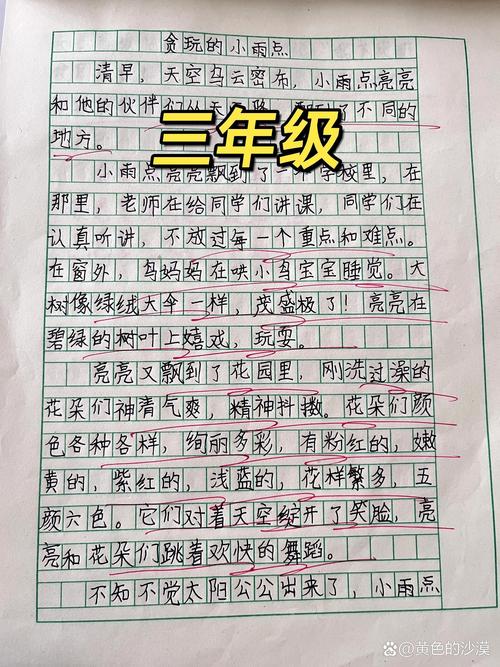 贪玩的小雨点
清早，天空乌云密布，小雨点亮亮
和他的伙伴们从天 了不同的
地方。
三年级
小雨点亮亮飘到了一个学校里，在
那里，老师在给同学们讲课，同学们在
认真听讲，不放过每一个重点和难点。
在窗外，鸟妈妈在哄小鸟宝宝睡觉。大
树像绿绒大伞一样，茂盛极了！亮亮在
碧绿的树叶上嬉戏，玩耍。
亮亮又飘到了花园里，刚洗过澡的
花朵们神清气爽，精神抖擞。花朵们颜
色各种各样，绚丽多彩，有粉红的，嫩
黄的，紫红的，浅蓝的，花样繁多，五
颜六色。它们对着天空绽开了笑脸，亮
亮和花朵们跳着欢快的舞蹈。
不知不觉太阳公公出来了，小雨点
百家号/黄色的沙漠